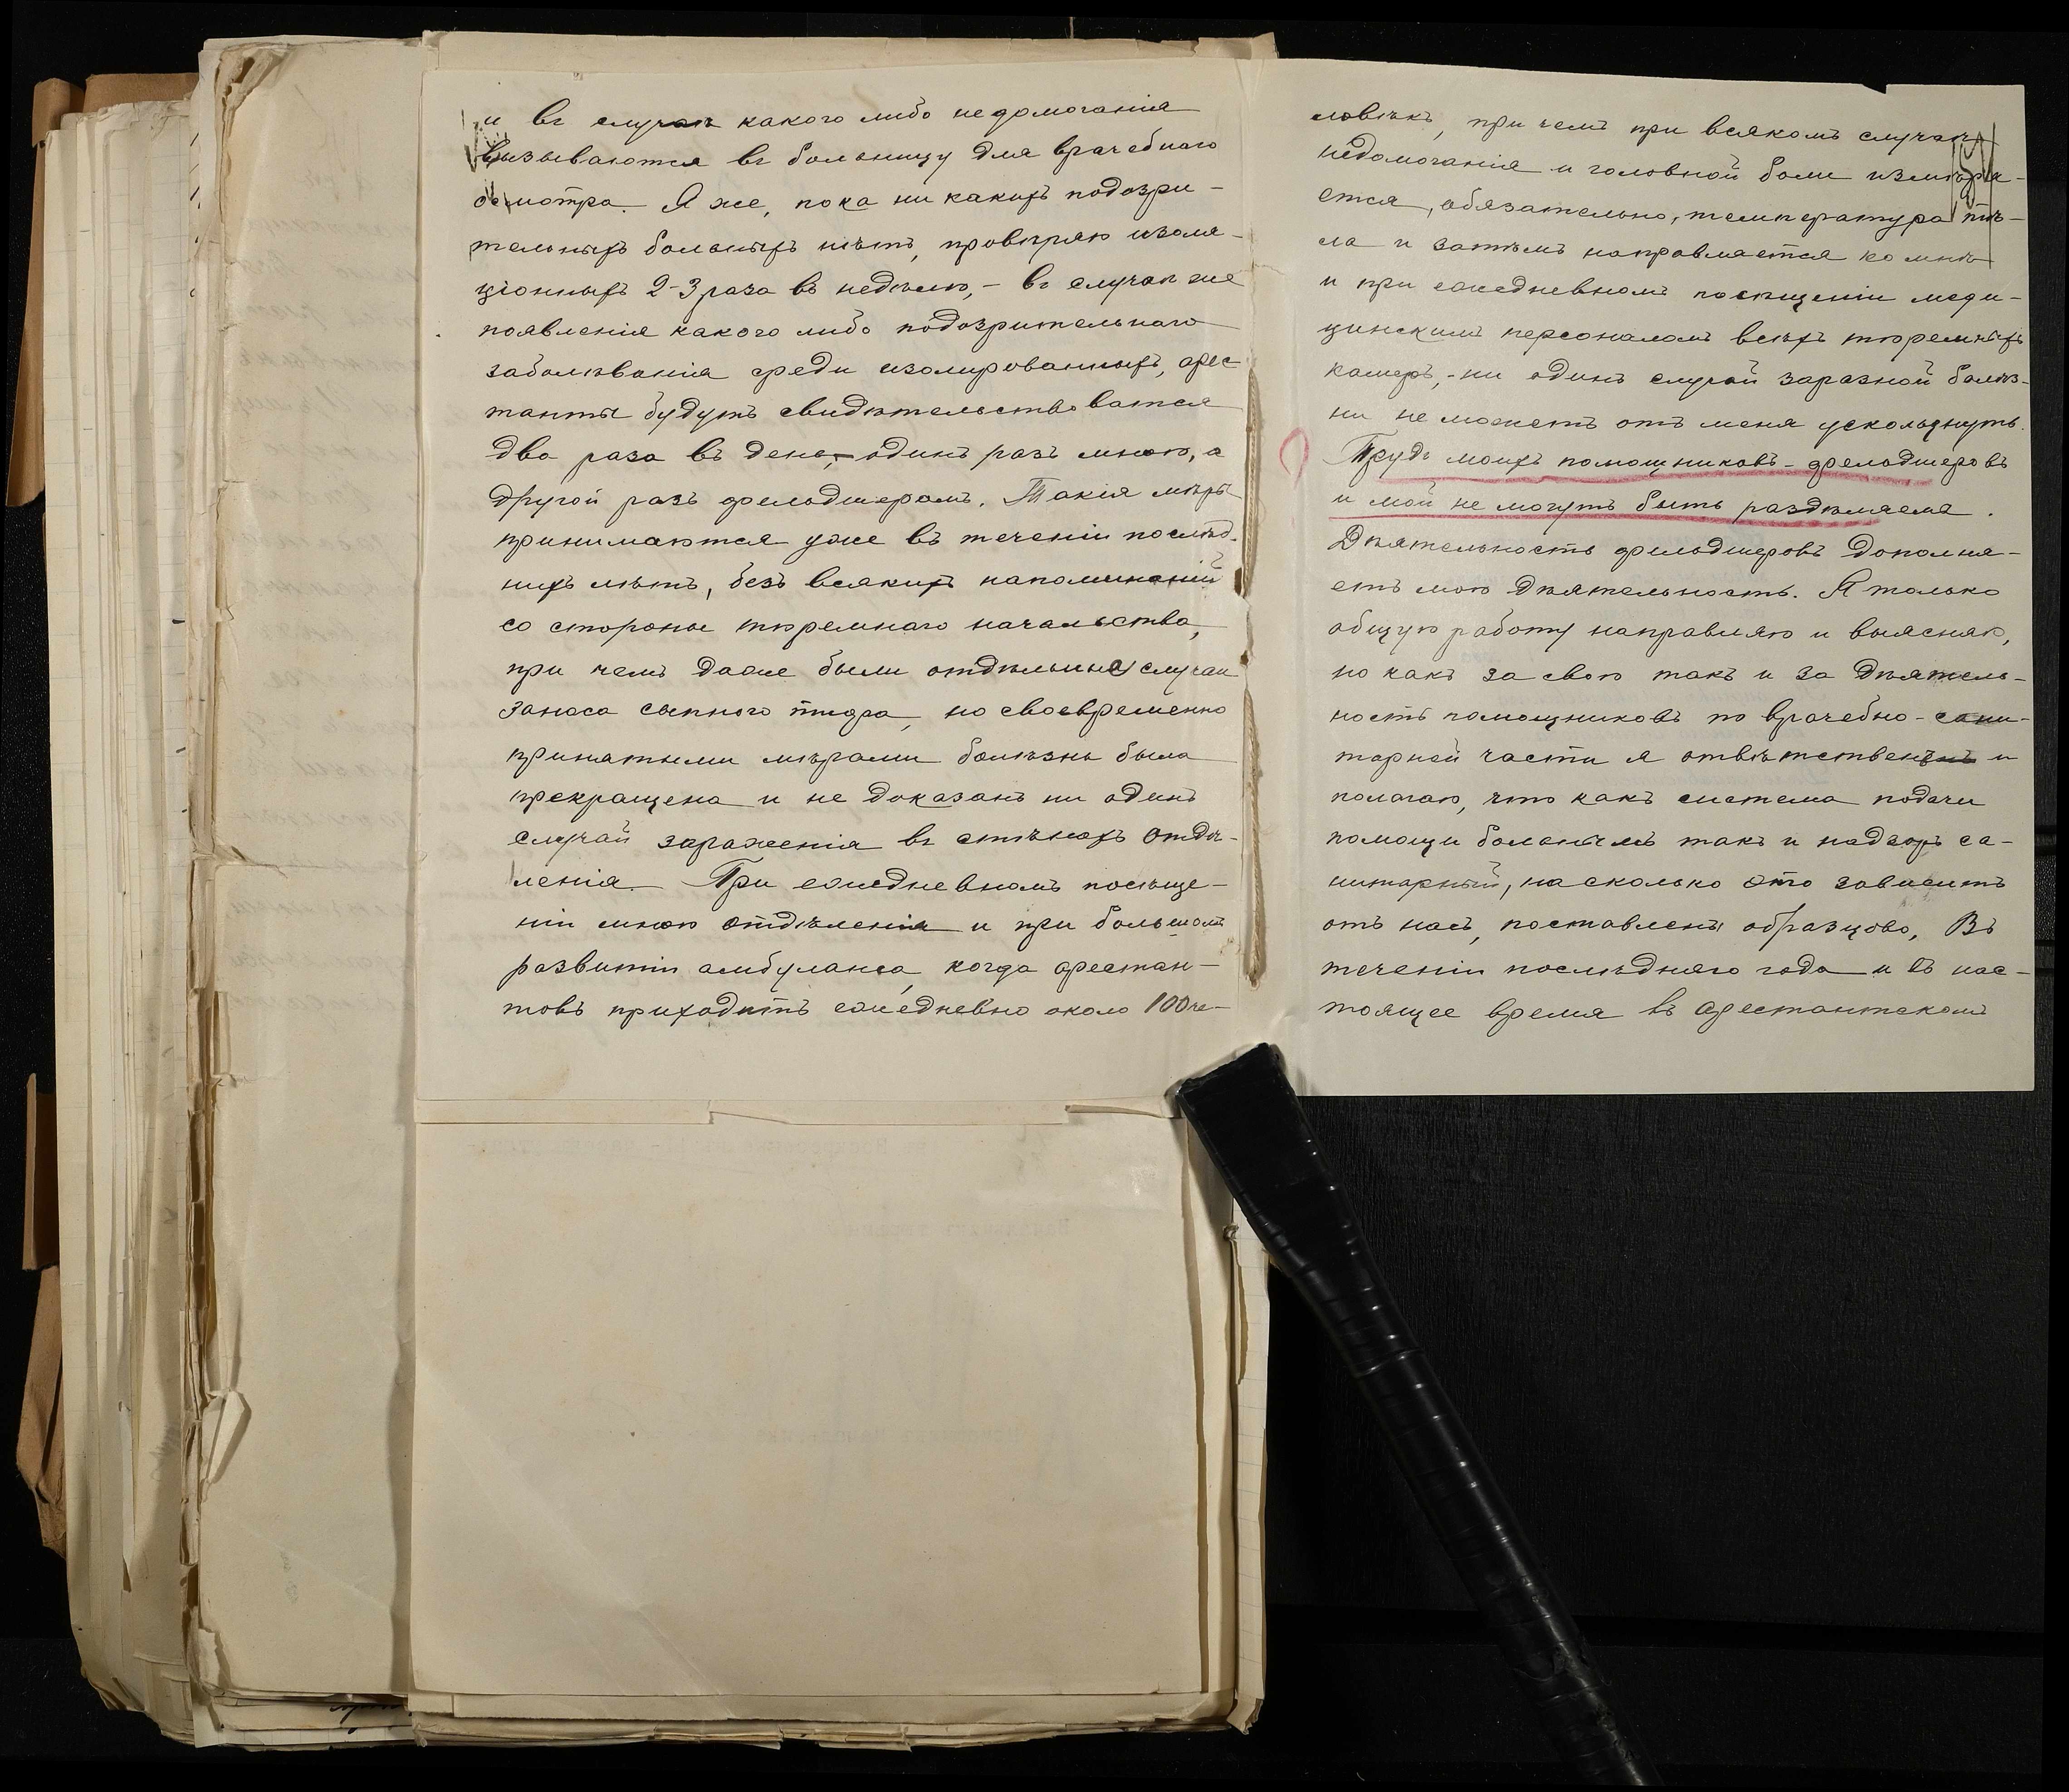 и въ случаѣ какого либо недомоганія
вызываются въ больницу для врачебнаго
осмотра. Я же, пока ни какихъ подозри-
тельныхъ больныхъ нѣтъ, провѣряю изоля-
ціонныхъ 2-3 раза въ недѣлю, - въ случаѣ же
появленія какого либо подозрительнаго
заболѣванія среди изолированныхъ, арес-
танты будутъ свидѣтельствоватся
два раза въ день, - одинъ разъ мною, а
другой разъ фельдшеромъ. Такія мѣры
принимаются уже въ теченіи послѣд-
нихъ лѣтъ, безъ всякихъ напоминаній
со стороны тюремнаго начальства,
при чемъ даже были отдѣльные случаи
заноса сыпного тифа, но своевременно
принятыми мѣрами болѣзнь была
прекращена и не доказанъ ни одинъ
случай зараженія въ стѣнахъ отдѣ-
ленія. При ежедневномъ посѣще-
ніи мною отдѣленія и при большомъ
развитіи амбуланса, когда арестан-
товъ приходитъ ежедневно около 100 че-
ловѣкъ, при чемъ при всякомъ случаѣ
недомоганія и головной боли измѣря-
ется, обязательно, температура тѣ-
ла и затѣмъ направляется ко мнѣ
и при ежедневномъ посѣщеніи меди-
цинскимъ персоналомъ всѣхъ тюремныхъ
камеръ, - ни одинъ случай заразной болѣз-
ни не можетъ отъ меня ускользнуть.
Трудъ моихъ помощниковъ - фельдшеровъ
и мой не могутъ быть раздѣляемы.
Дѣятельность фельдшеровъ дополня-
етъ мою дѣятельность. Я только
общую работу направляю и выясняю,
но какъ за свою такъ и за дѣятель-
ность помощниковъ по врачебно-сани-
тарной части я отвѣтственъ и
полагаю, что какъ система подачи
помощи больнымъ такъ и надзоръ са-
нитарный, на сколько это зависитъ
отъ насъ, поставлены образцово. Въ
теченіи послѣдняго года и въ нас-
тоящее время въ арестантскомъ